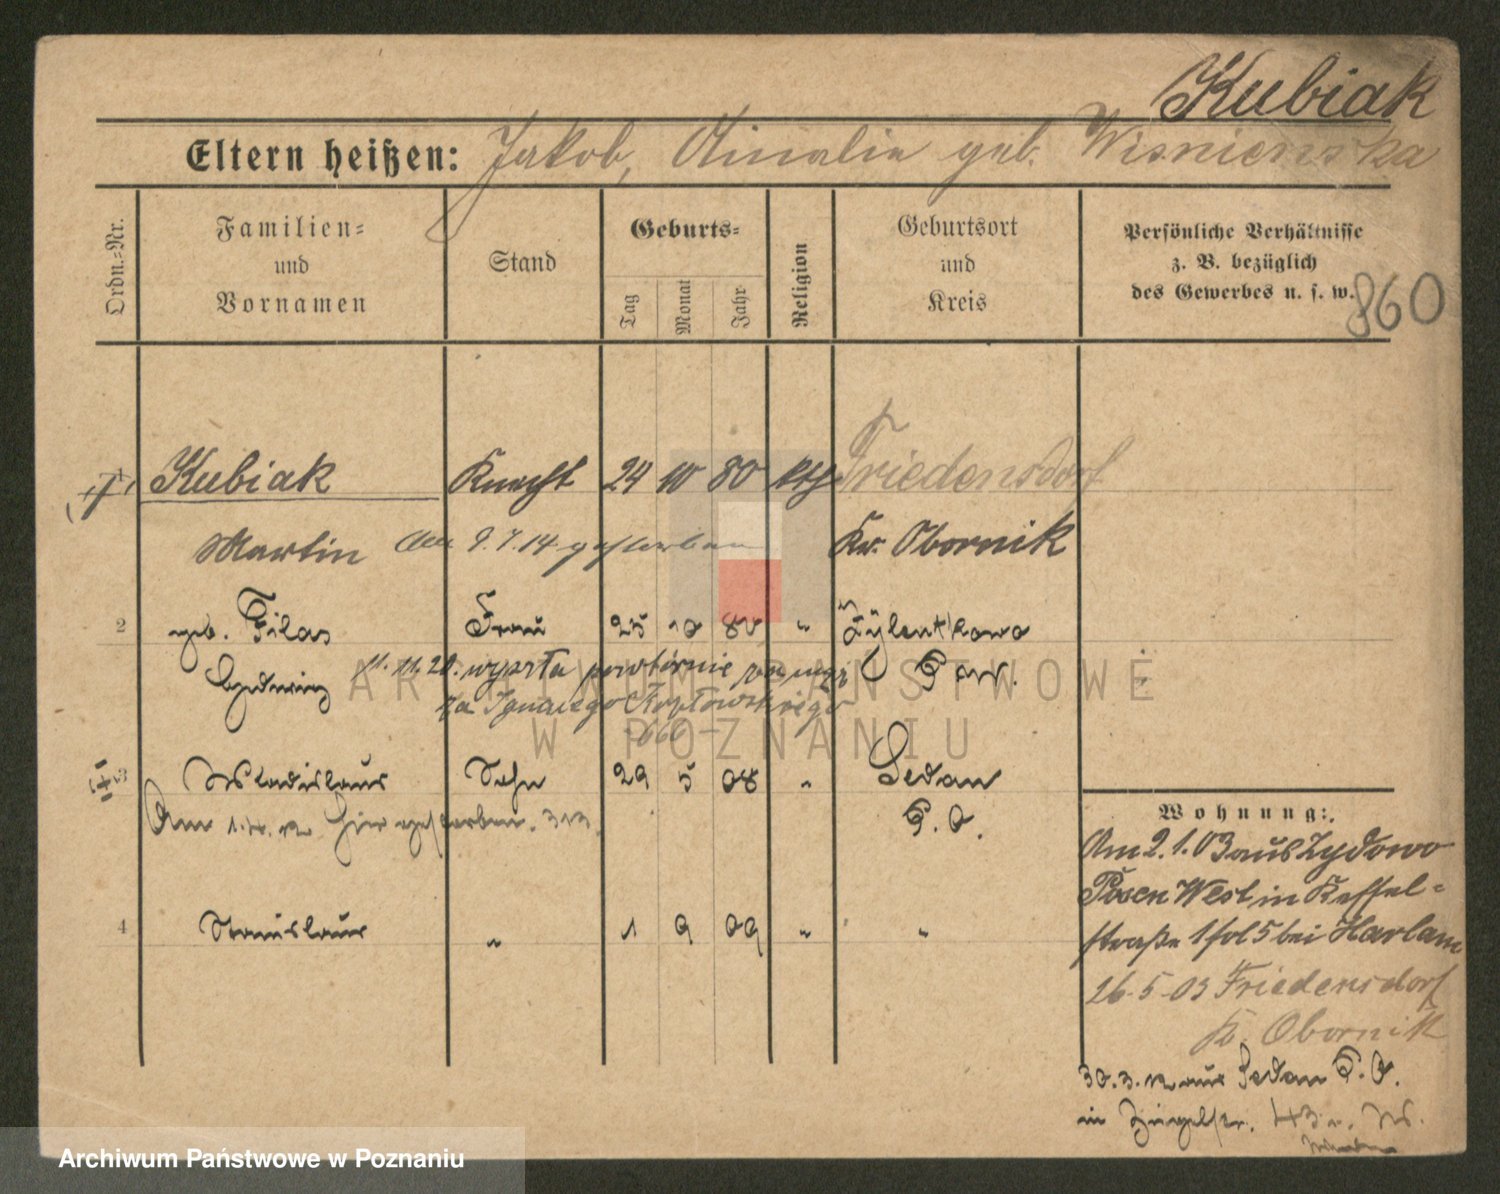 Kubiak
Eltern heißen: Jakob, geb. Wisniewska
Ordn.=Nr.
Familien=
und
Vornamen
Stand
Geburts=
Tag
Monat
Jahr
Religion
Geburtsort
und
Kreis
Persönliche Verhältnisse
z. B. bezüglich
des Gewerbes u. s. w.
860
Kubiak Knecht 24 10 80 kth Friedensdorf
Martin Am 9.7.14 gestorben Kr. Obornik
2 geb. Filas Frau 25 10 „
11.11.20. wyszła powtórnie za mąż
za Ignacego
666
3 Wladislaus Sohn 29 5 08 „ Sedan
Am hier gestorben. 313. P. O.
4 Stanislaus „ 1 9 09 „ „
Wohnung:
Am 2.1.03 aus Zydowo
Posen West in Kessel=
straße 1 fol 5 bei Harlam
26.5.03 Friedensdorf
Kr. Obornik
30.3.12 aus Sedan P. O.
in 43
ARCHIWUM PAŃSTWOWE
W POZNANIU
Archiwum Państwowe w Poznaniu